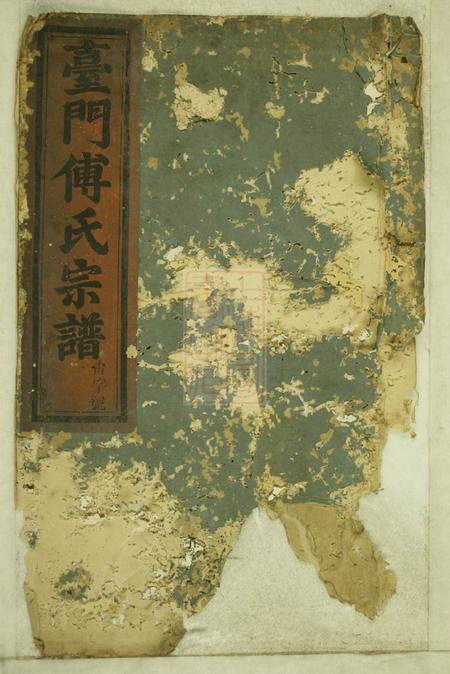 臺門傅氏宗譜
字號